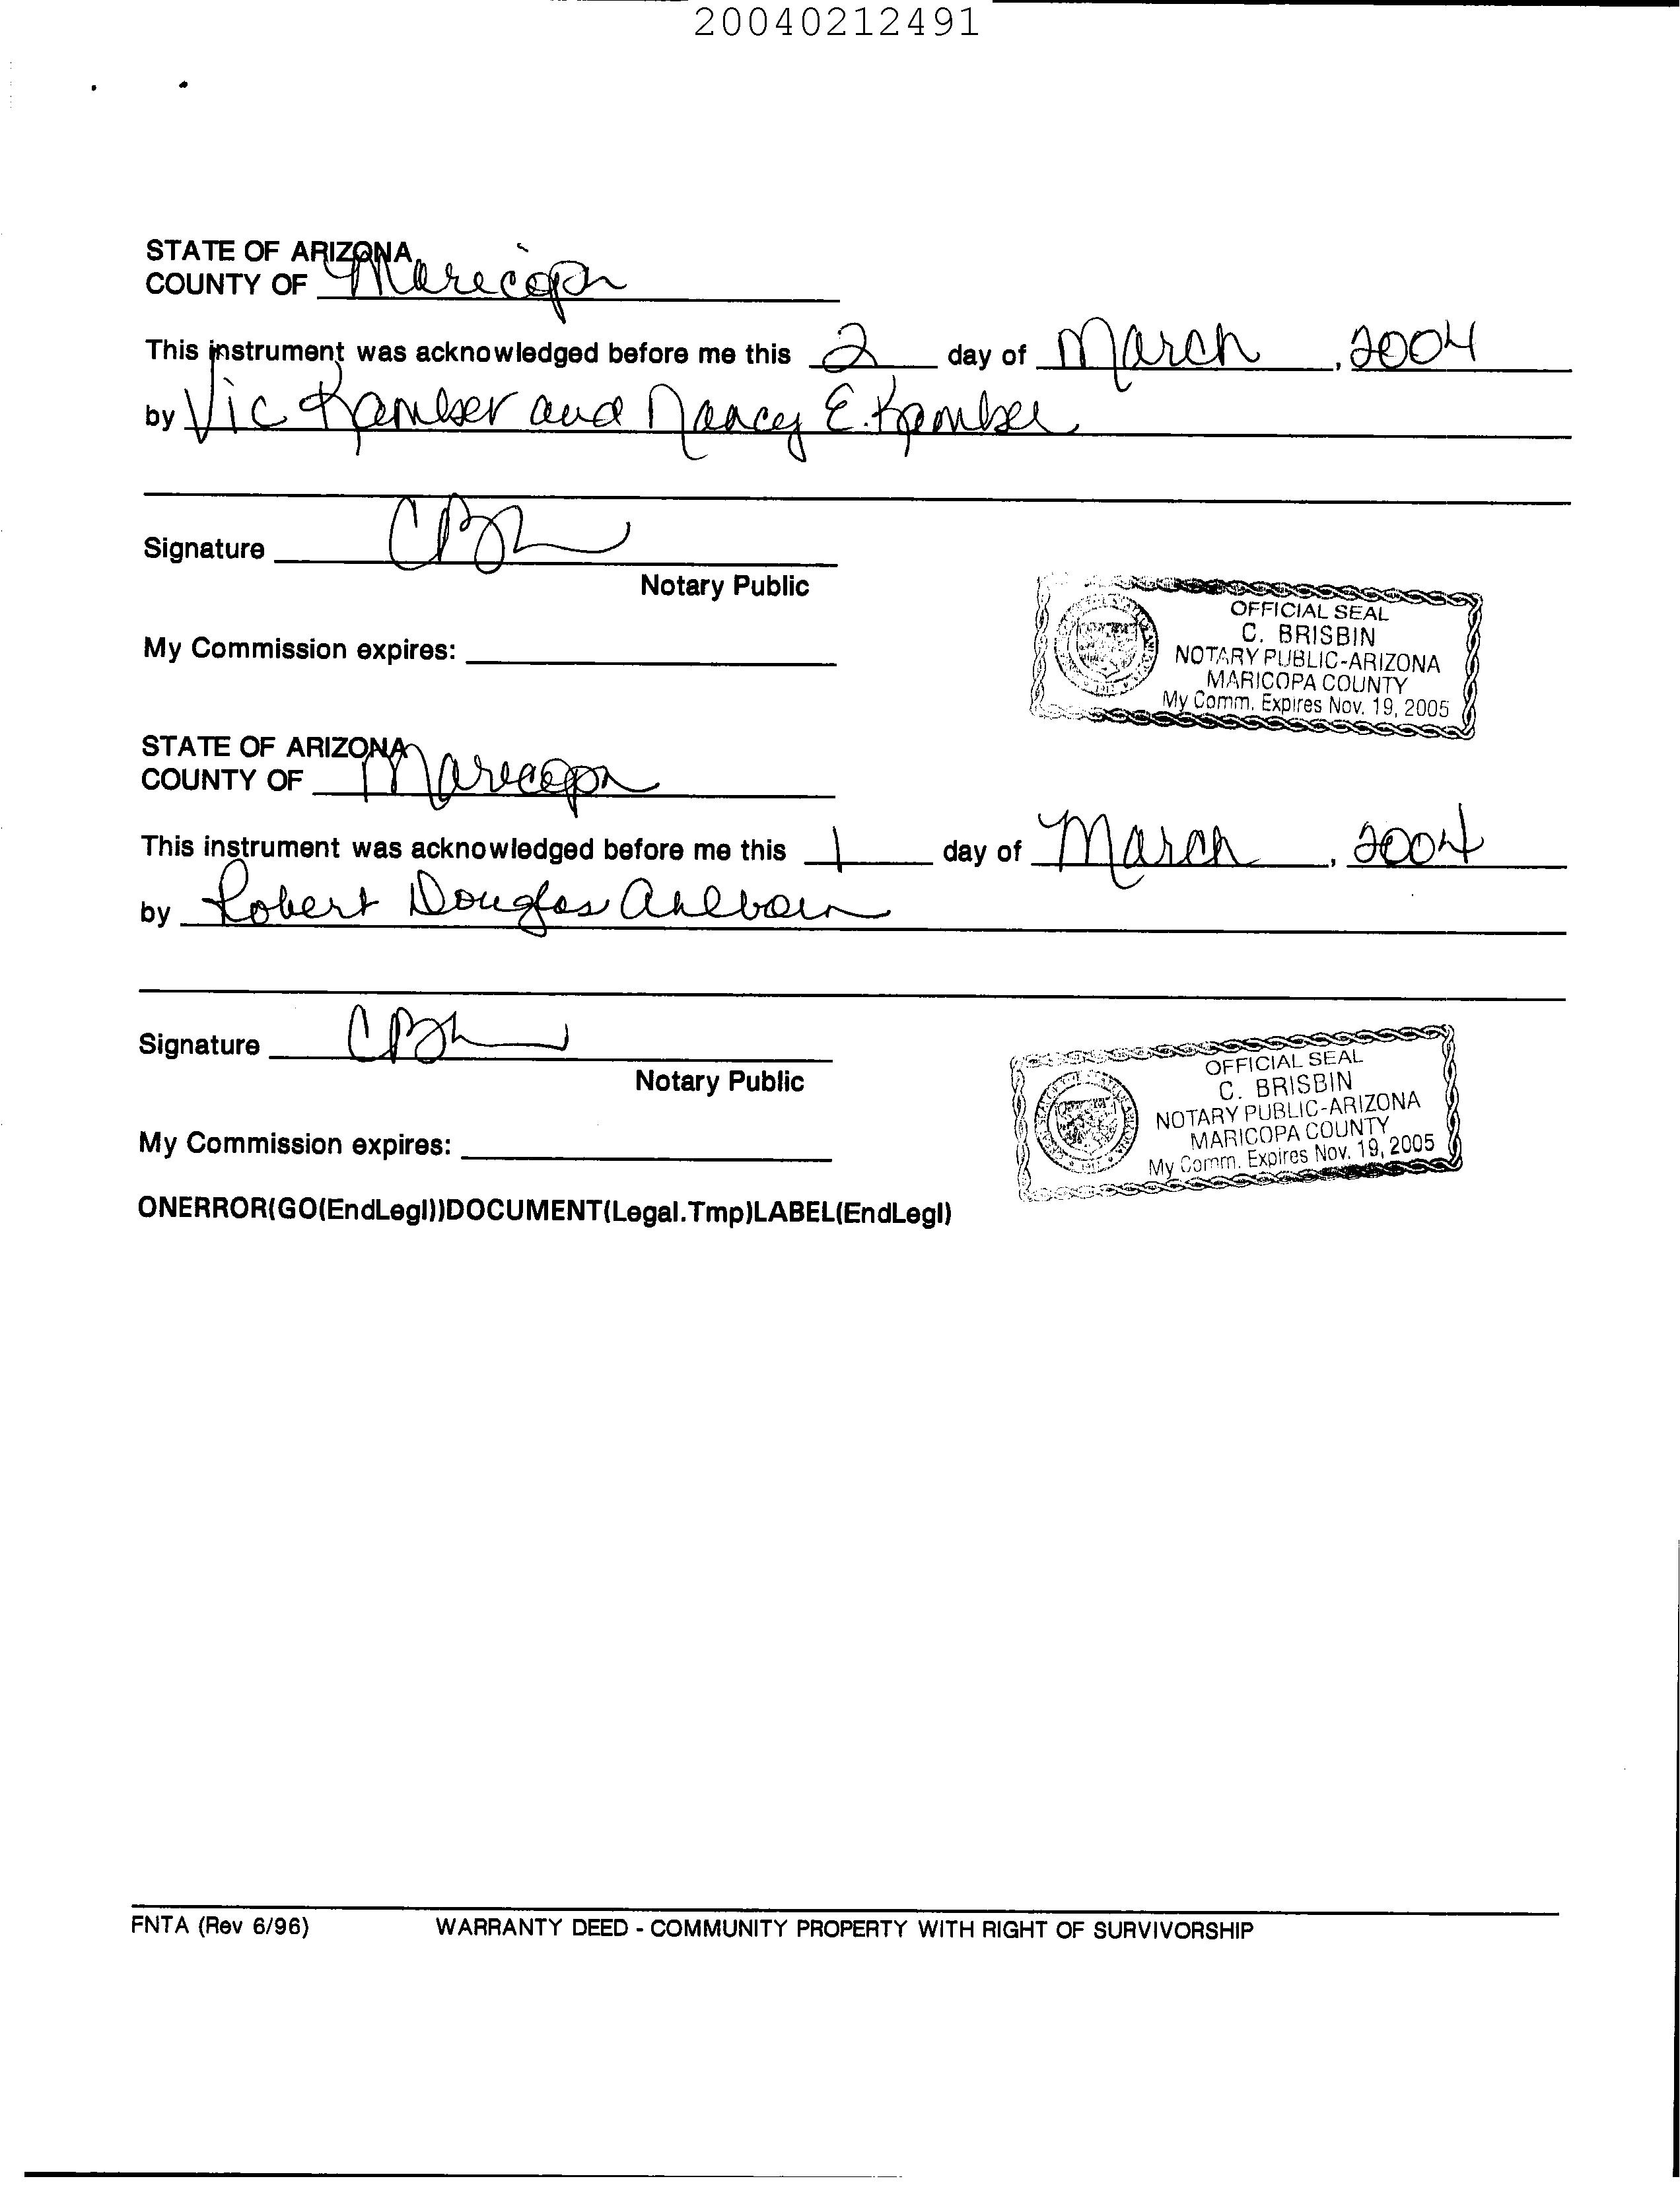 20040212491
STATE OF ARIZONA
COUNTY OF Maricopa
This instrument was acknowledged before me this 2 day of March, 2004
by Vic Kamber and Nancy E. Kamber
Signature
Notary Public
OFFICIAL SEAL
C. BRISBIN
NOTARY PUBLIC-ARIZONA
MARICOPA COUNTY
My Comm. Expires Nov. 19, 2005
My Commission expires:
STATE OF ARIZONA
COUNTY OF Maricopa
This instrument was acknowledged before me this 1 day of March, 2004
by Robert Douglas
Signature
Notary Public
OFFICIAL SEAL
C. BRISBIN
NOTARY PUBLIC-ARIZONA
MARICOPA COUNTY
My Comm. Expires Nov. 19, 2005
My Commission expires:
ONERROR(GO(EndLegl))DOCUMENT(Legal.Tmp)LABEL(EndLegl)
FNTA (Rev 6/96) WARRANTY DEED - COMMUNITY PROPERTY WITH RIGHT OF SURVIVORSHIP